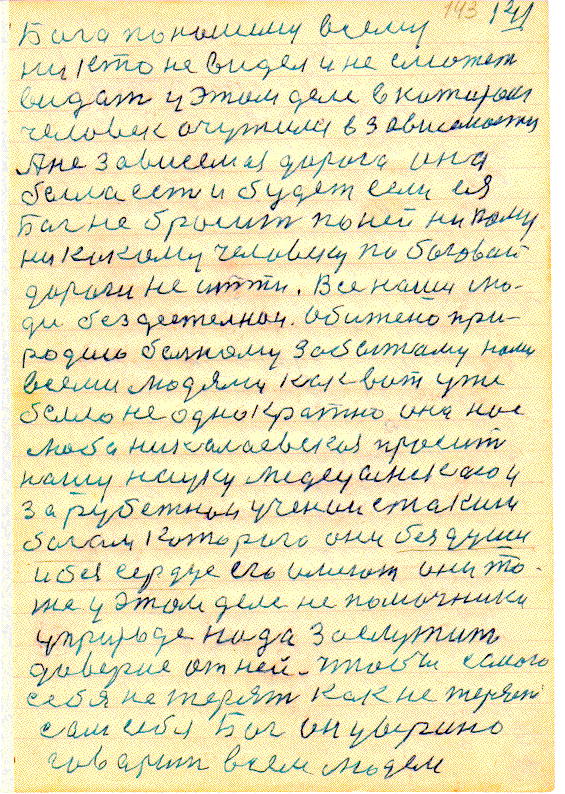 143 141
Бога по нашему всему
ни кто не видел и не сможет
видат у этом деле в котором
человек очутился в зависемости
А не зависемая дорога она
была ест и будет если ея
Бог не бросит по ней ни кому
ни какому человеку по боговай
дороги не итти. Все наши лю-
ди бездеетелнаи. обижено при-
родаю болному забытаму нами
всеми людями как вот уже
было не однократно она нас
люба николаевская просит
нашу науку медецинскаю и
зарубежнаи ученаи с таким
богам которого они без души
и без сердце его они то-
же у этом деле не помочники
у природе нада заслужить
доверие от ней. чтобы самого
себя не терят как не теряет
сам себя Бог он уверено
говарит всем людем